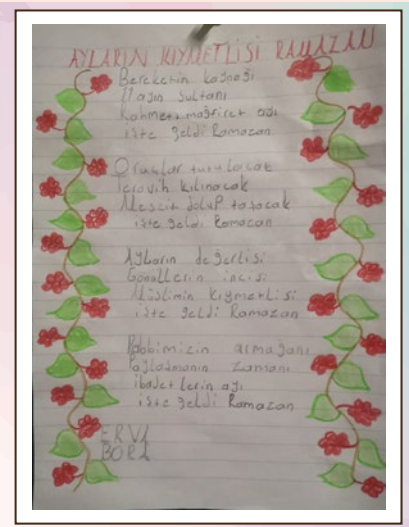 AYLARIN KIYMETLİSİ RAMAZAN
Bereketin kaynağı
11 ayın sultanı
Rahmet, mağfiret ayı
işte geldi Ramazan
Oruçlar tutulacak
Teravih kılınacak
Mescit dolup taşacak
işte geldi Ramazan
Ayların değerlisi
Gönüllerin incisi
Müslimin kıymetlisi
işte geldi Ramazan
Rabbimizin armağanı
Paylaşmanın zamanı
ibadetlerin ayı
işte geldi Ramazan
BORA